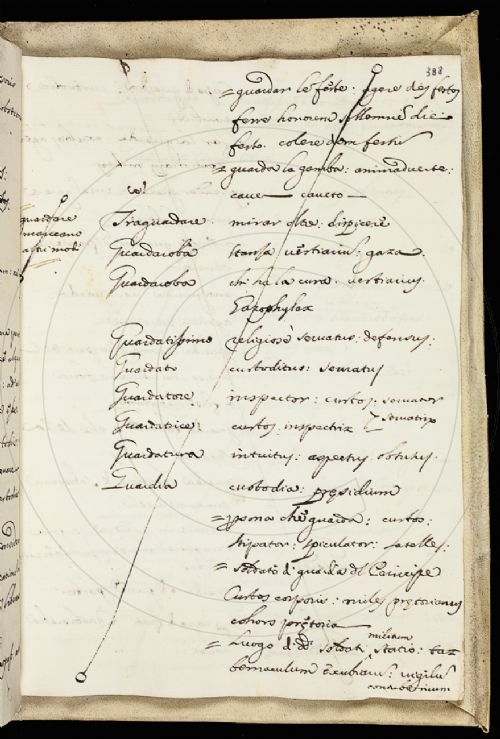 388
= guardar le feste. agere dies festos
ferre honorem sollemnem diei
festo. colere diem festum
= guarda la gamba: animadverte:
cave — caveto —
guardare
mancano
altri modi
Traguardare mirar oltre: dispicere
Guardaroba stanza vestiarium: gaza
Guardaroba chi ha la cura vestiarius
Gazophylax
Guardatissimo religiose servatus: defensus:
Guardato custoditus: servatus
Guardatore inspector: custos: servator
Guardatrice custos: inspectrix servatrix
Guardatura intuitus: aspectus: obtutus.
Guardia custodia: presidium
= psona che guarda: custos:
stipator: speculator: satelles:
= soldato di guardia del Principe
Custos corporis: miles pretorianus
cohors pretoria
= Luogo di dd soldati militum statio: ta
bernaculum excubiarum: vigilum
contubernium